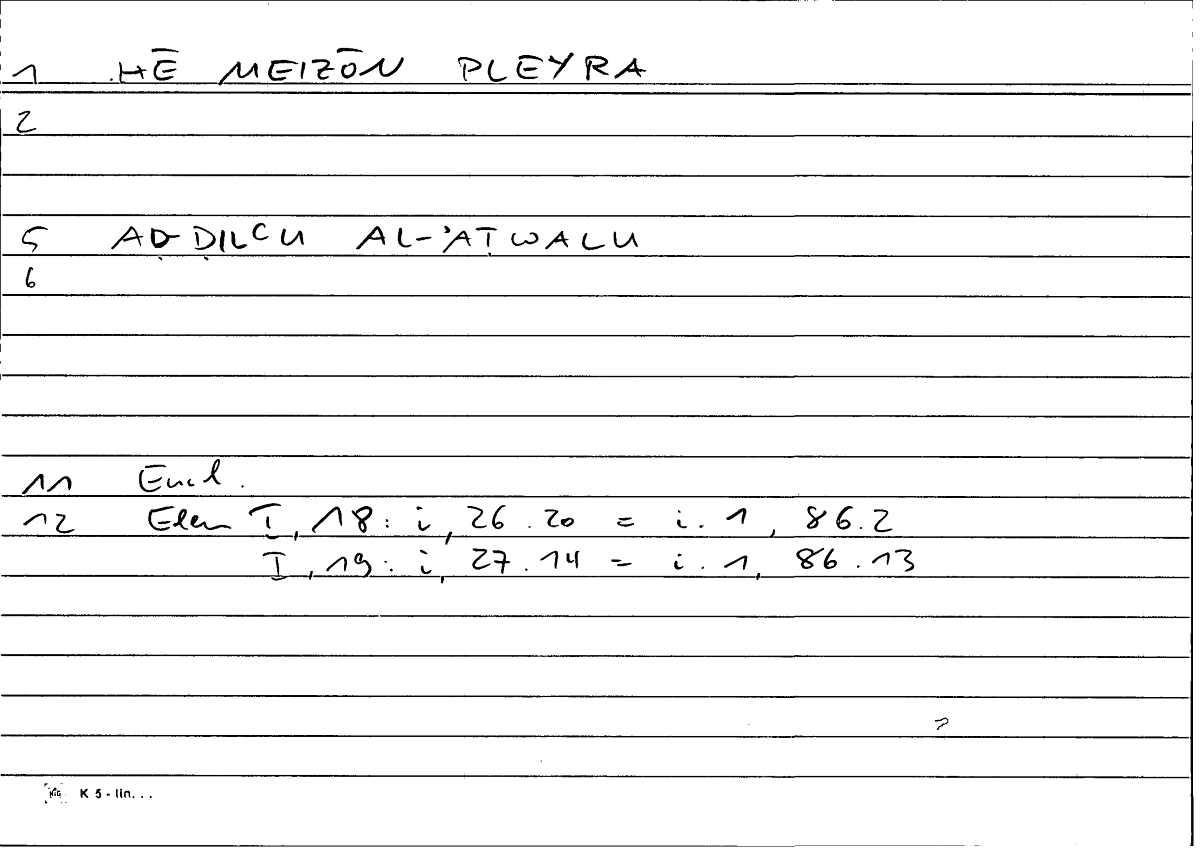 1 HĒ MEIZŌN PLEYRA
2
5 AḌ-ḌILCU AL-ʾAṬWALU
6
11 Eucl.
12 Elem I, 18: i, 26.20 = i.1, 86.2
I, 19: i, 27.14 = i.1, 86.13
?
K 5 - lin...